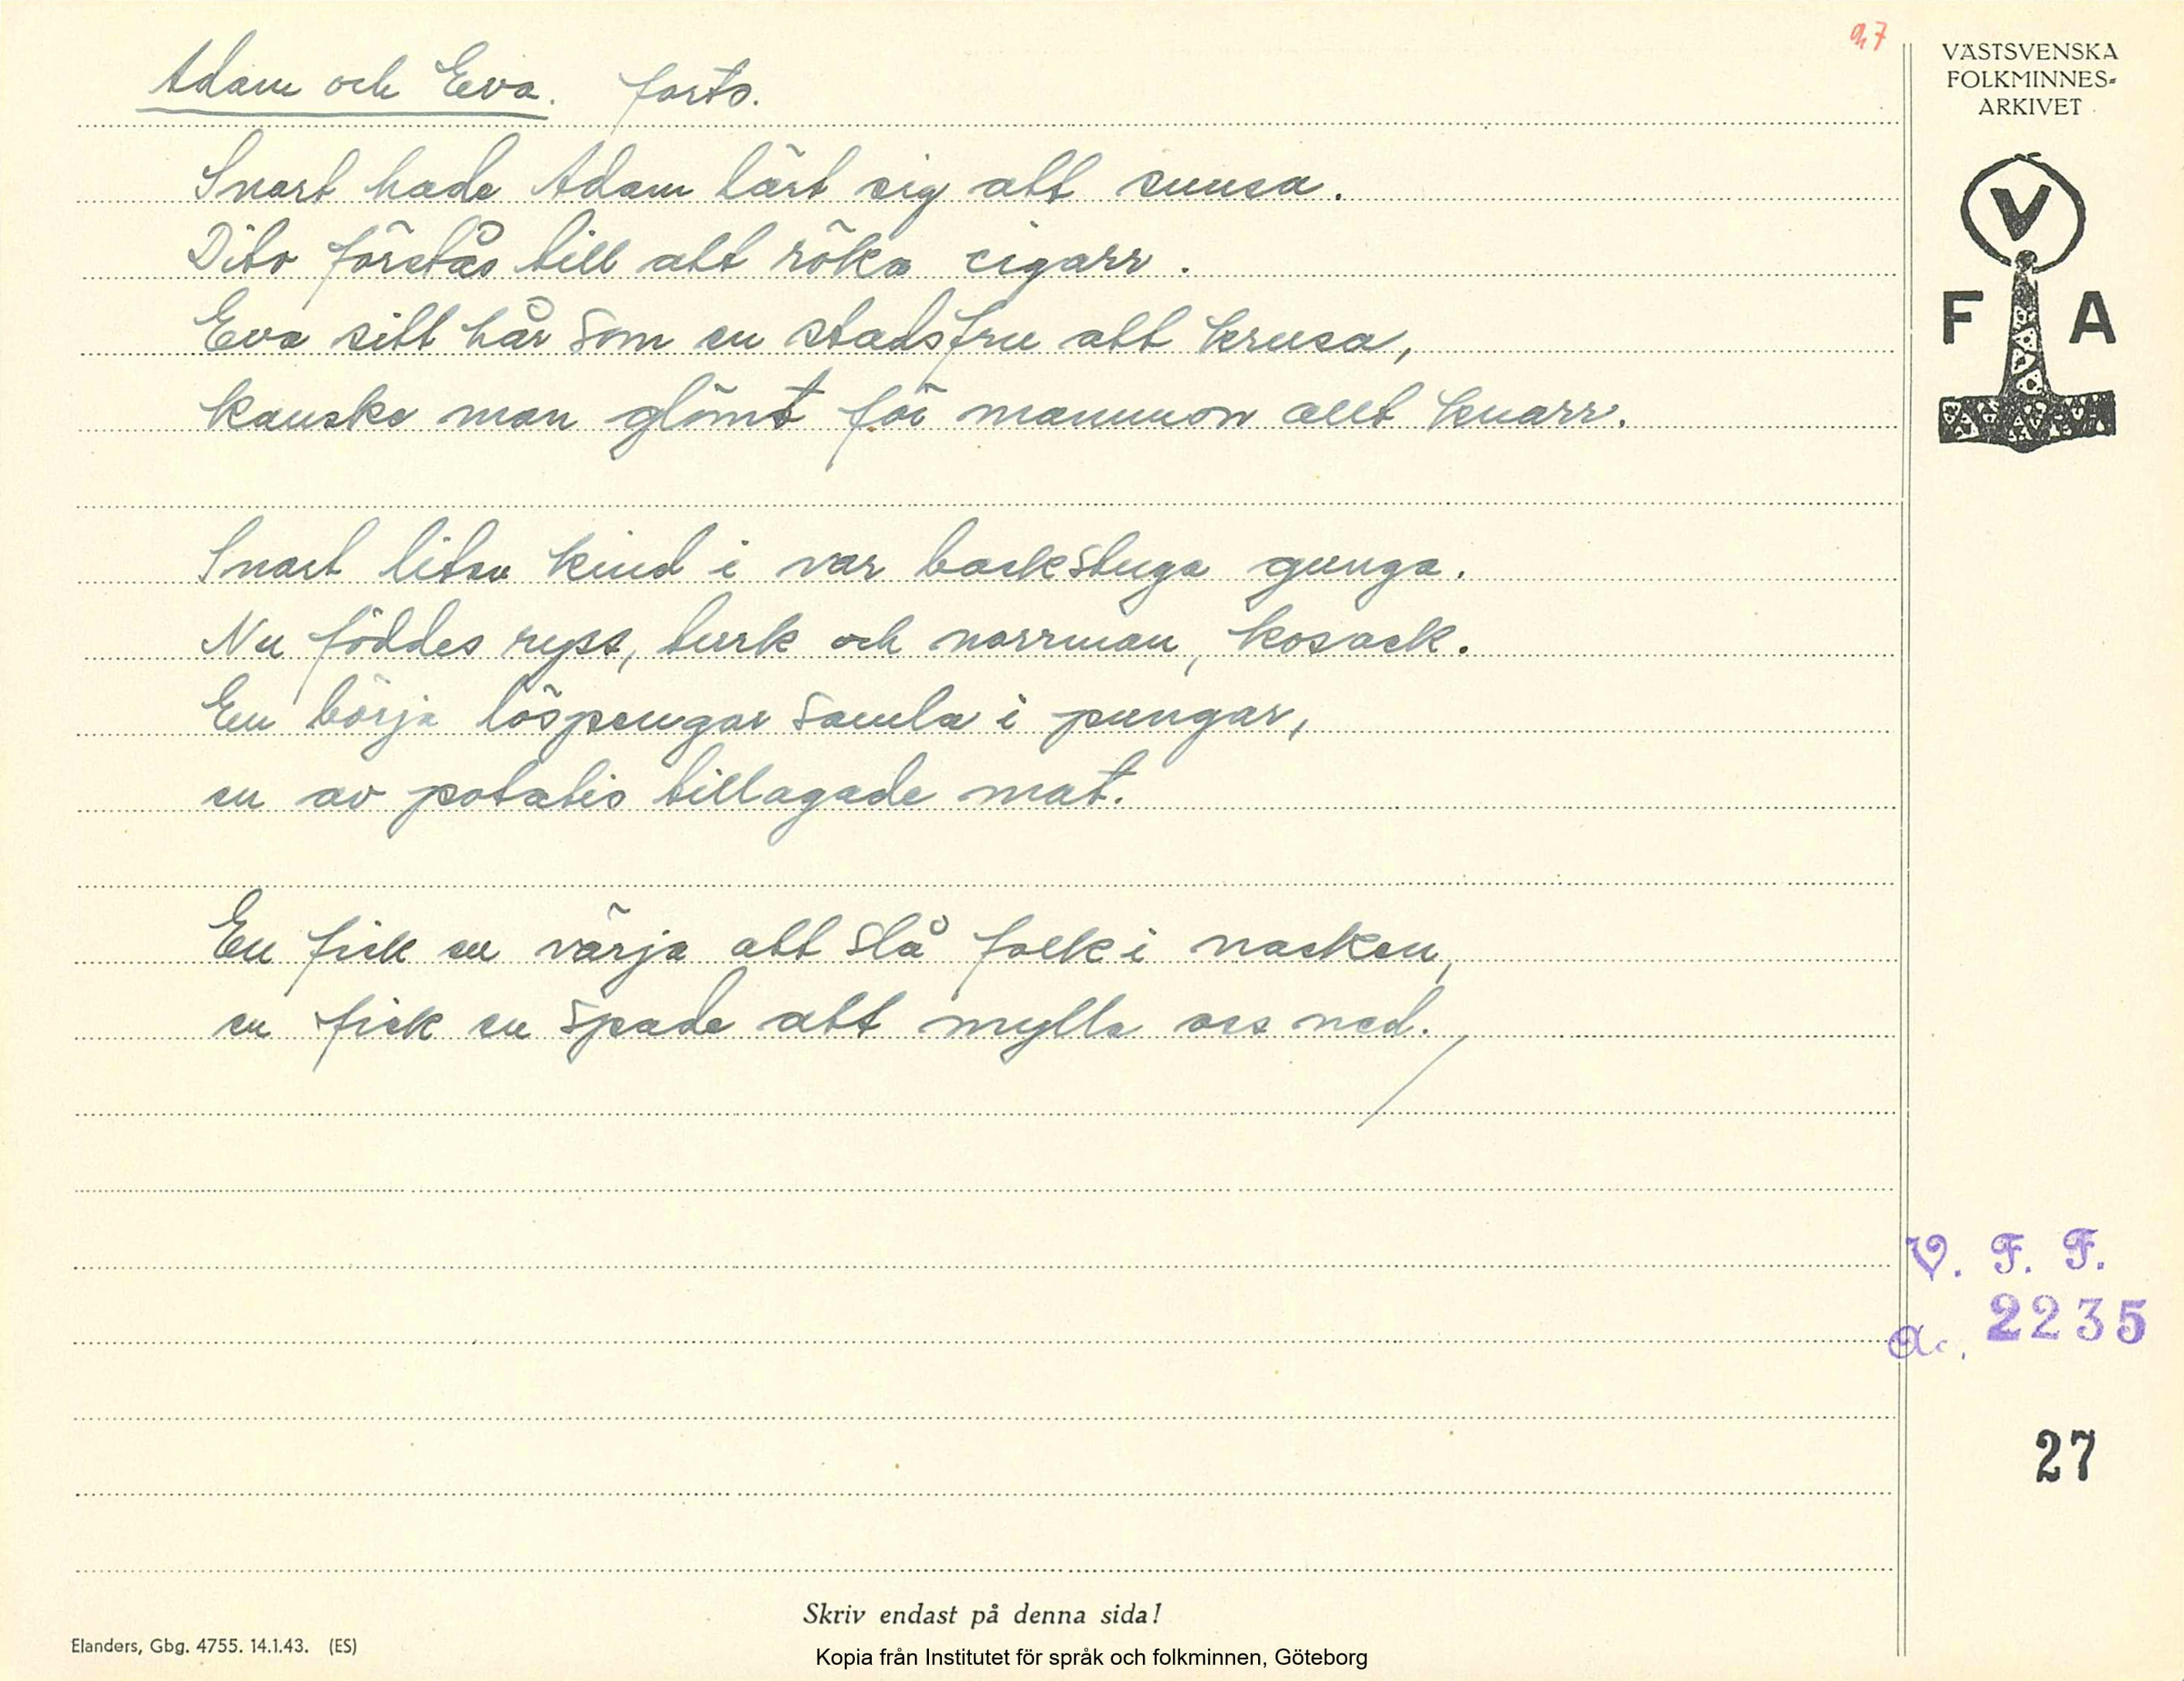 27
Adam och Eva. forts.
Snart hade Adam lärt sig att snusa.
Dito förstås till att röka cigarr.
Eva sitt hår som en stadsfru att krusa,
kanske man glömt för mammon allt knarr.
Snart liten kind i var backstuga gunga.
Nu föddes ryss, turk och norrman, kosack.
En börja löspengar samla i pungar,
en av potatis tillagade mat.
En fick en värja att slå folk i nacken,
en fick en spade att mylla oss ned.
VÄSTSVENSKA
FOLKMINNES-
ARKIVET
V
F A
V. F. F.
2235
27
Skriv endast på denna sida!
Elanders, Gbg. 4755. 14.1.43. (ES)
Kopia från Institutet för språk och folkminnen, Göteborg